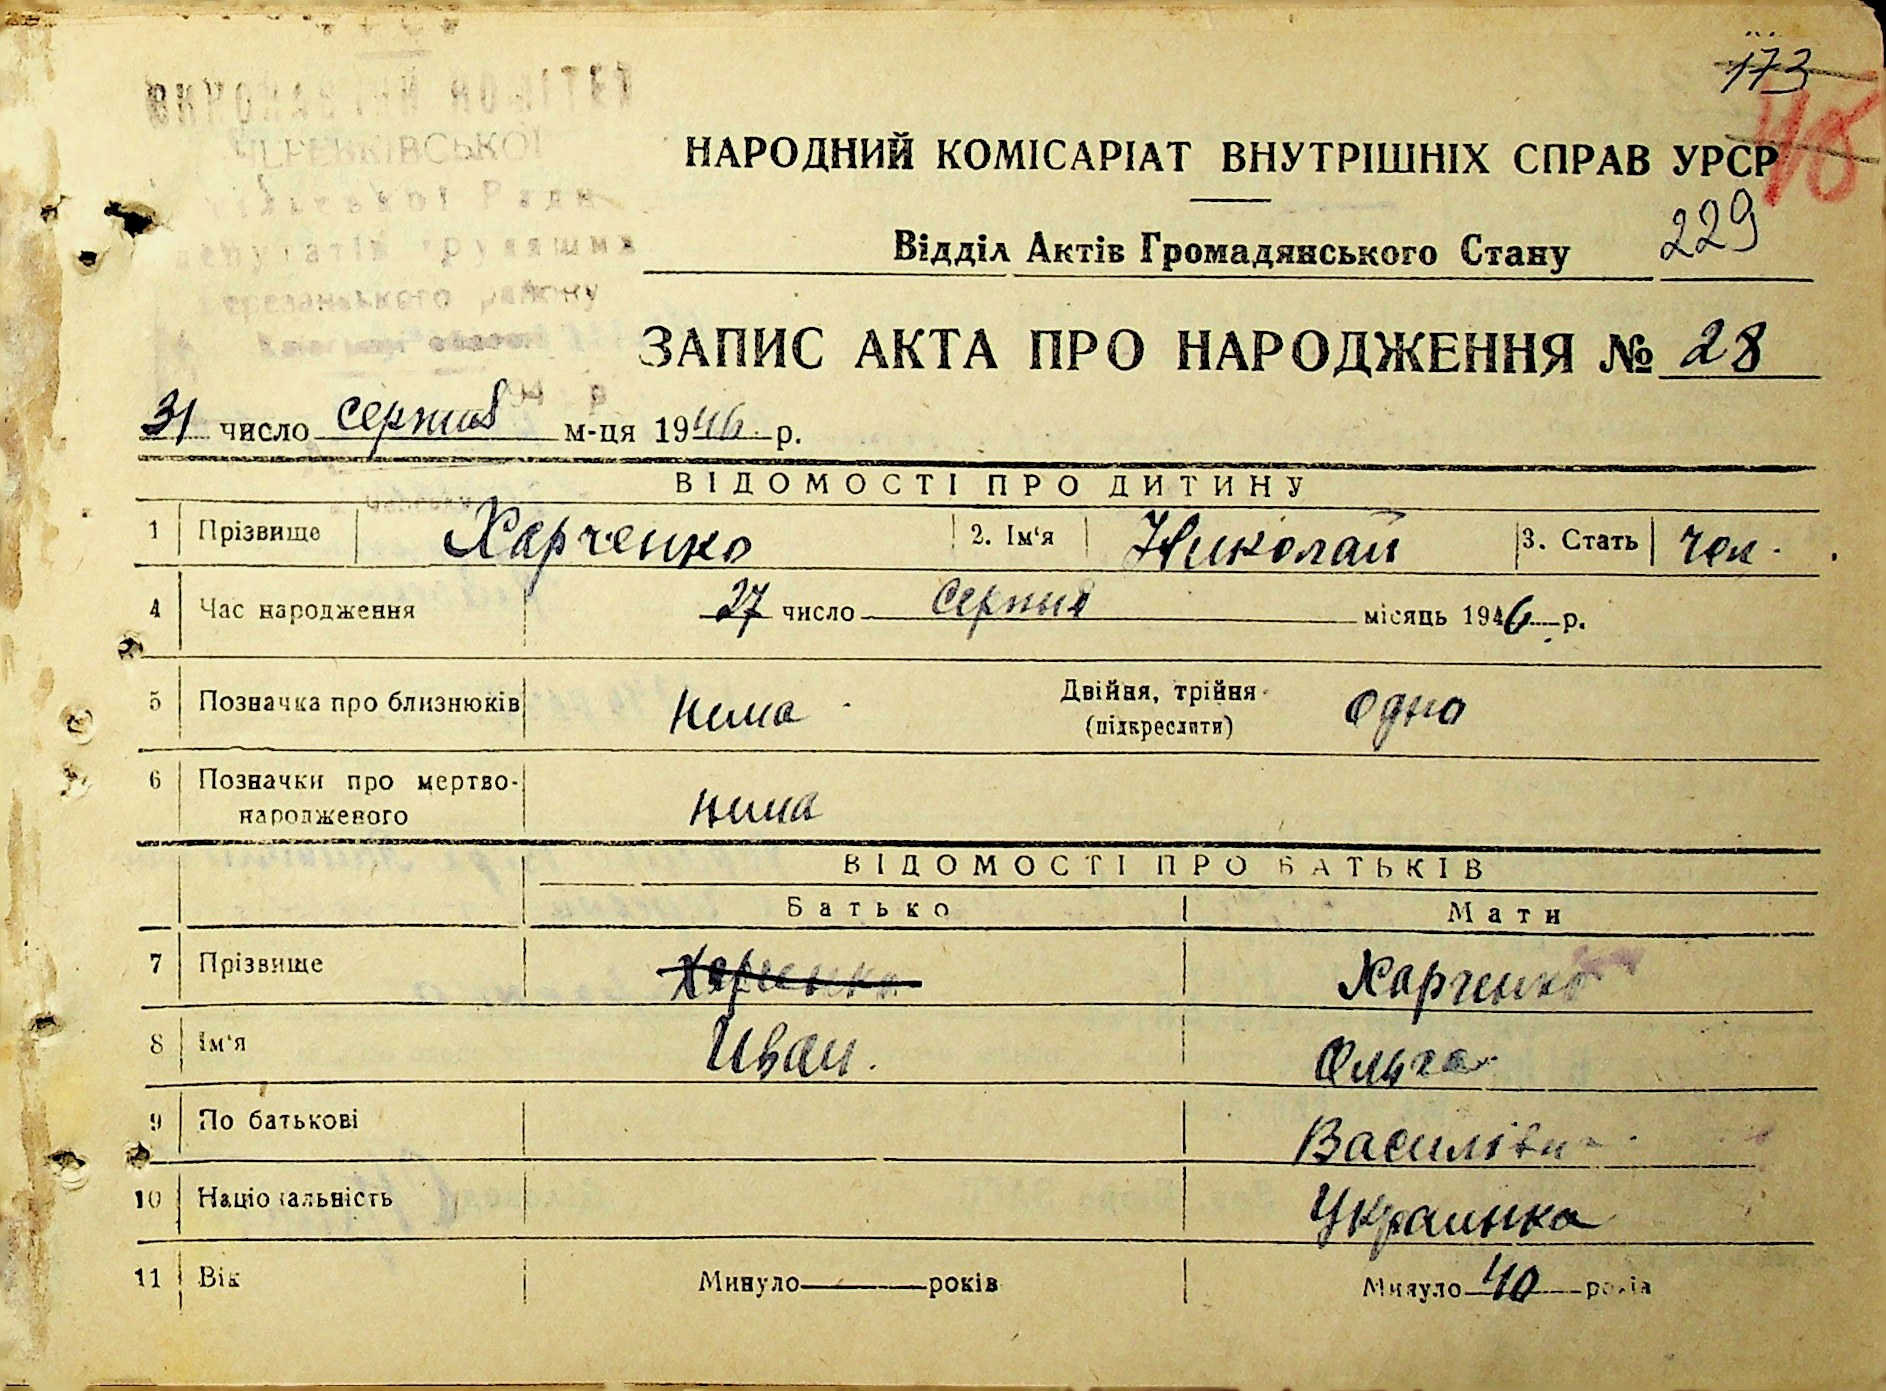 173
48
ВИКОНАВЧИЙ КОМІТЕТ
ЧЕРЕВКІВСЬКОЇ
сільської Ради
депутатів трудящих
Березанського району
Київської області
НАРОДНИЙ КОМІСАРІАТ ВНУТРІШНІХ СПРАВ УРСР
Відділ Актів Громадянського Стану 229
ЗАПИС АКТА ПРО НАРОДЖЕННЯ № 28
31 число серпня м-ця 1946 р.
ВІДОМОСТІ ПРО ДИТИНУ
1 Прізвище Харченко 2. Ім'я Николай 3. Стать чол.
4 Час народження 27 число серпня місяць 1946 р.
5 Позначка про близнюків нема Двійня, трійня одно
(підкреслити)
6 Позначки про мертво-
народженого нема
ВІДОМОСТІ ПРО БАТЬКІВ
Батько Мати
7 Прізвище Харченко Харченко
8 Ім'я Иван. Ольга
9 По батькові Василівн
10 Національність Украинка
11 Вік Минуло років Минуло 40 років